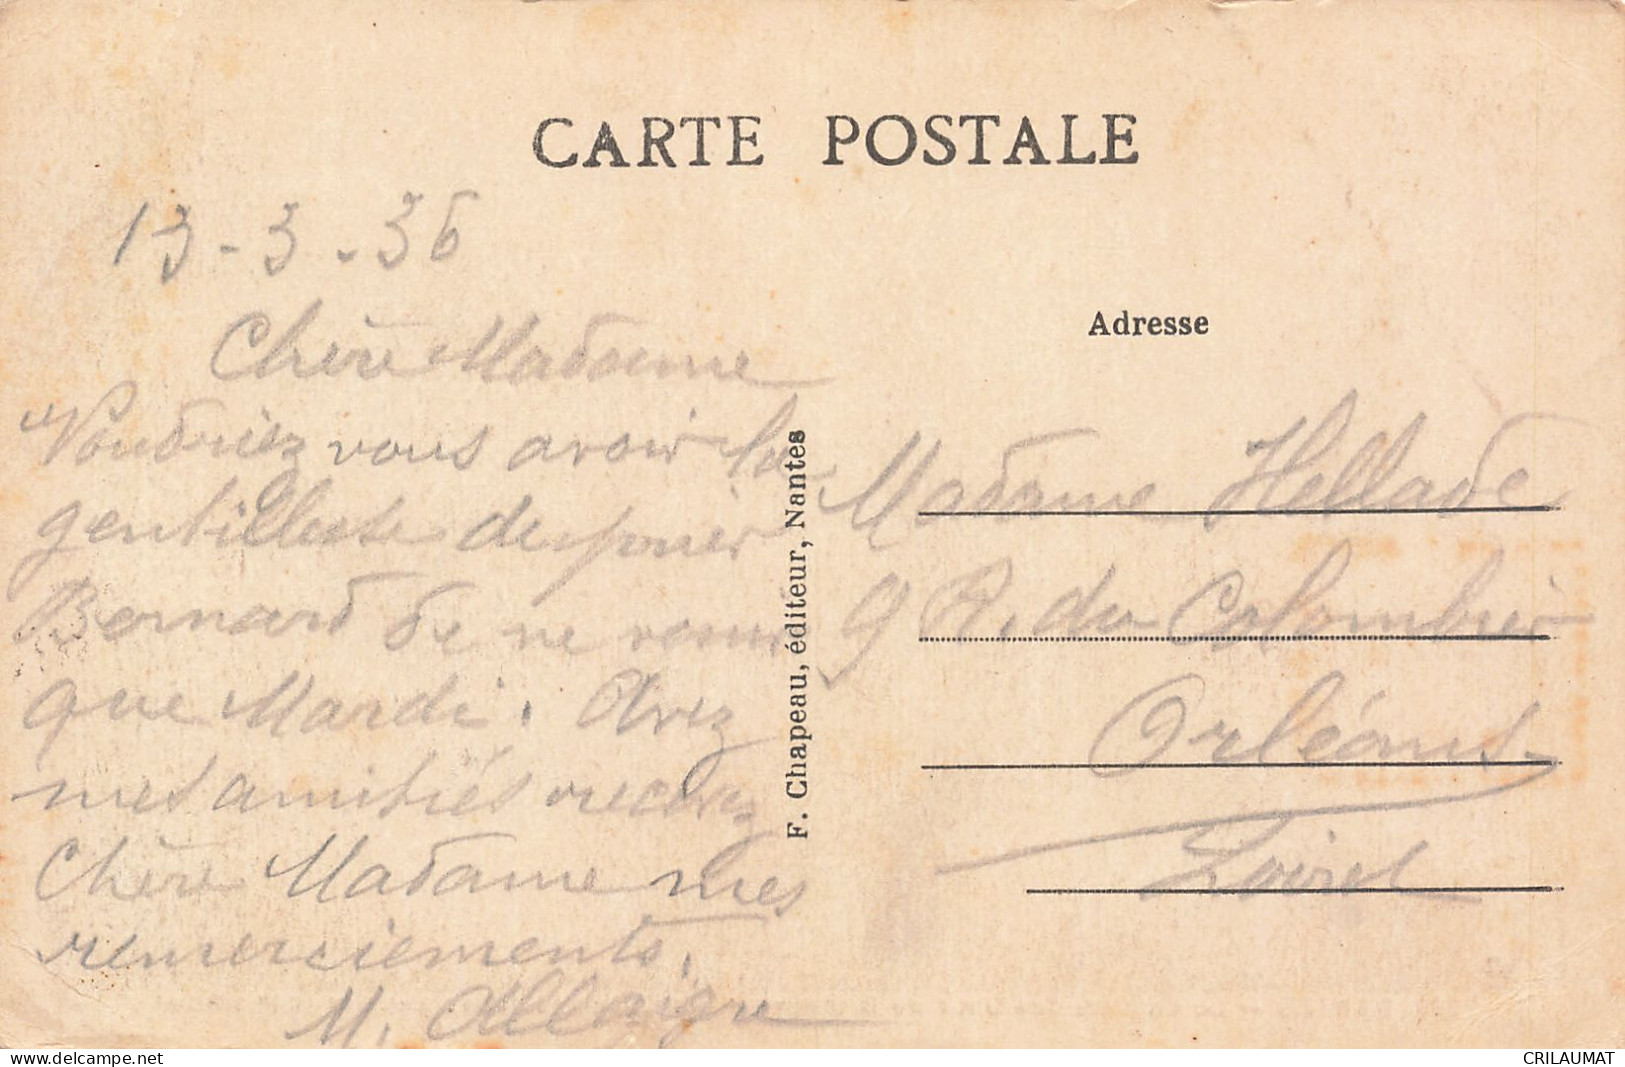 CARTE POSTALE
13-3-36
Chère Madame
Voudriez vous avoir la
gentillesse de prier
Bernard de ne venir
que Mardi. Avec
mes amitiés recevez
Chère Madame mes
remerciements.
M. Allaigre
F. Chapeau, éditeur, Nantes
Adresse
Madame Hellade
9 R. du Colombier
Orléans
Loiret
www.delcampe.net
CRILAUMAT